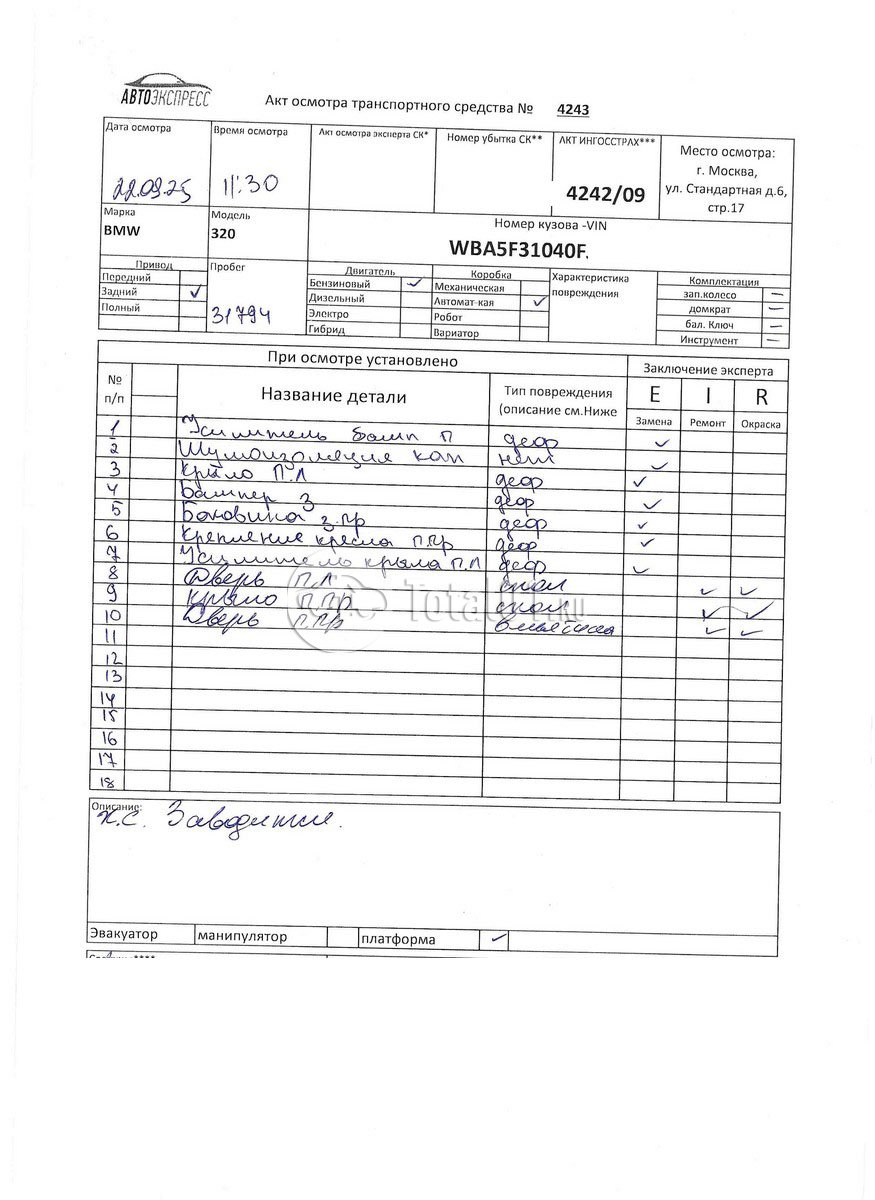 АВТОЭКСПРЕСС
Акт осмотра транспортного средства № 4243
Дата осмотра
22.09.25
Время осмотра
11:30
Акт осмотра эксперта СК*
Номер убытка СК**
АКТ ИНГОССТРАХ***
4242/09
Место осмотра:
г. Москва,
ул. Стандартная д.6,
стр.17
Марка
BMW
Модель
320
Номер кузова -VIN
WBA5F31040F.
Привод
Передний
Задний ✓
Полный
Пробег
31794
Двигатель
Бензиновый ✓
Дизельный
Электро
Гибрид
Коробка
Механическая
Автомат-кая ✓
Робот
Вариатор
Характеристика
повреждения
Комплектация
зап.колесо —
домкрат —
бал. Ключ —
Инструмент —
При осмотре установлено
Заключение эксперта
№
п/п
Название детали
Тип повреждения
(описание см.Ниже
E I R
Замена Ремонт Окраска
1 Усилитель бамп П деф ✓
2 Шумоизоляция кап нет ✓
3 Крыло П.Л деф ✓
4 Бампер З деф ✓
5 Боковина з.пр деф ✓
6 Крепление кресла п.пр деф ✓
7 Усилитель крыла П.Л деф ✓
8 Дверь П.Л скол ✓ ✓
9 Крыло П.Пр скол ✓ ✓
10 Дверь П.Пр ✓ ✓
11
12
13
14
15
16
17
18
TotalCar.RU
Описание:
Х.С. Заводится.
Эвакуатор манипулятор платформа ✓